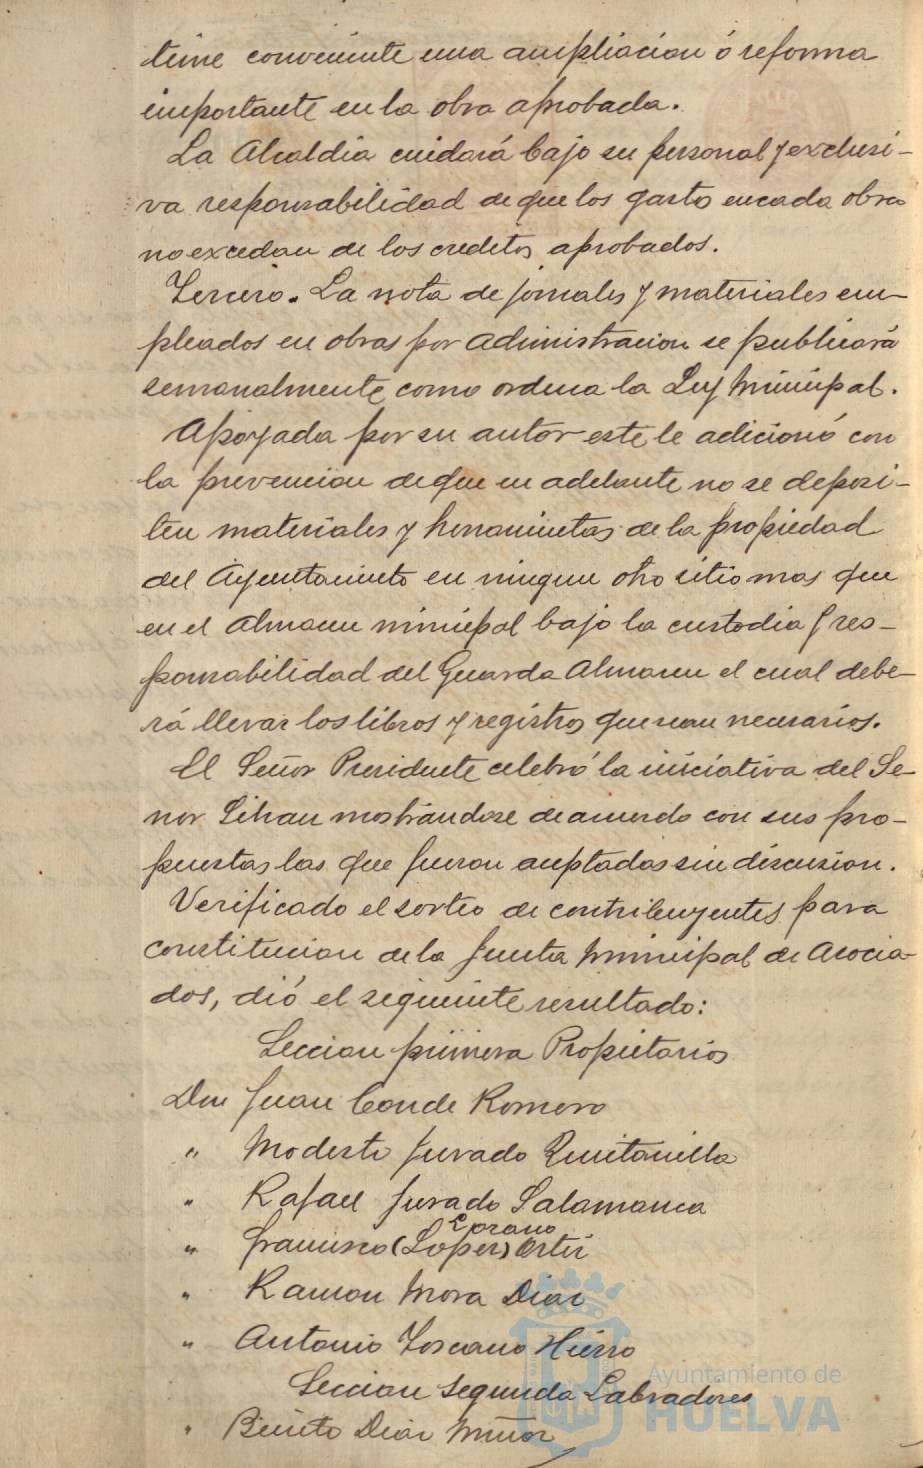 time conveniente una ampliacion ó reforma
importante en la obra aprobada.
La Alcaldia cuidará bajo su personal y exclusi-
va responsabilidad de que los gastos en cada obra
no excedan de los creditos aprobados.
Tercero. La nota de jornales y materiales em-
pleados en obras por Administracion se publicará
semanalmente como ordena la Ley Municipal.
Apoyada por su autor este le adicionó con
la prevencion de que en adelante no se deposi-
ten materiales y herramientas de la propiedad
del Ayuntamiento en ningun otro sitio mas que
en el Almacen municipal bajo la custodia y res-
ponsabilidad del Guarda Almacen el cual debe-
rá llevar los libros y registros que sean necesarios.
El Señor Presidente celebró la iniciativa del Se-
ñor mostrandose de acuerdo con sus pro-
puestas las que fueron aceptadas sin discusion.
Verificado el sorteo de contribuyentes para
constitucion de la Junta Municipal de Asocia-
dos, dió el seguiente resultado:
Seccion primera Propietarios
Don Juan Conde Romero
" Modesto Jurado Quintanilla
" Rafael Jurado Salamanca
Corano
" Francisco (Lopez) Ortiz
" Ramon Mora Diaz
" Antonio Toscano Hierro
Seccion segunda Labradores
" Benito Diaz Muñoz
Ayuntamiento de
HUELVA